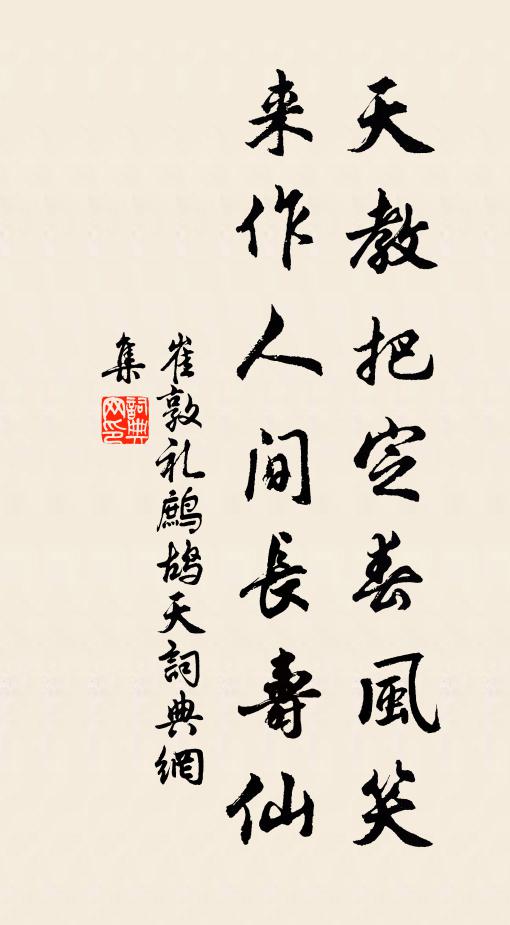 天教把定春風笑
来作人間長壽仙
崔敦礼鷓鴣天詞典網
集
詞典网印